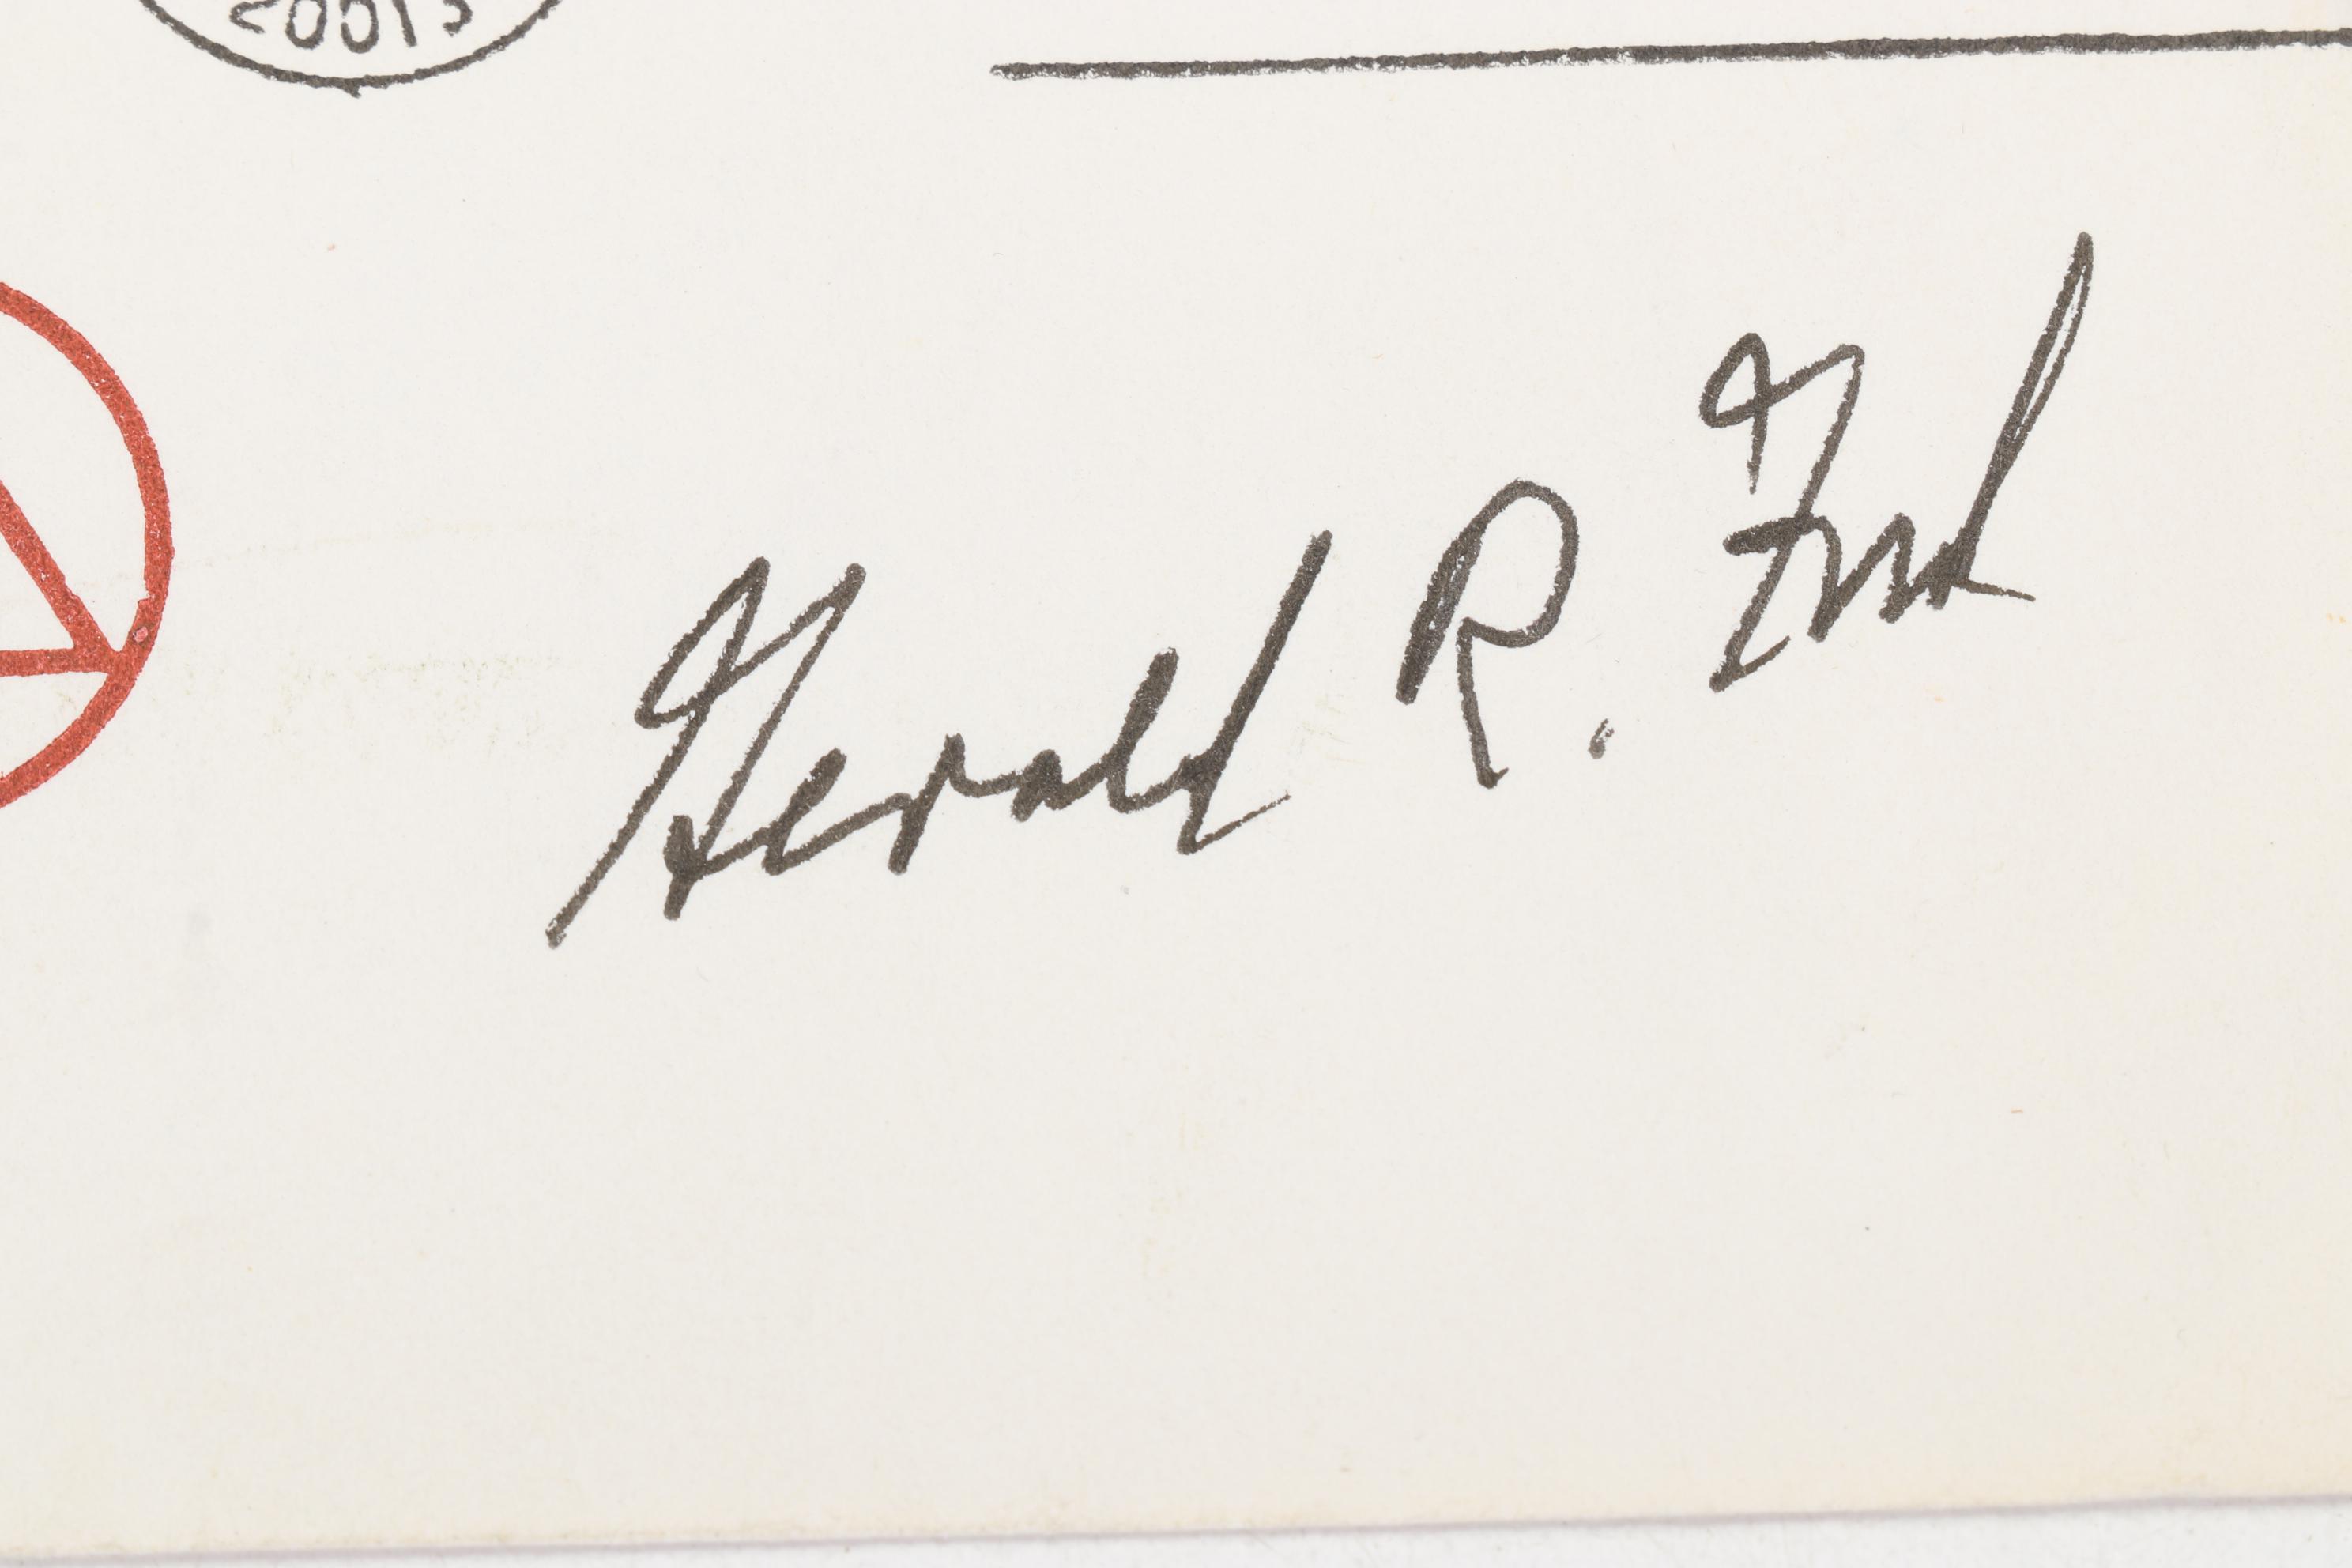 20013
Gerald R. Ford